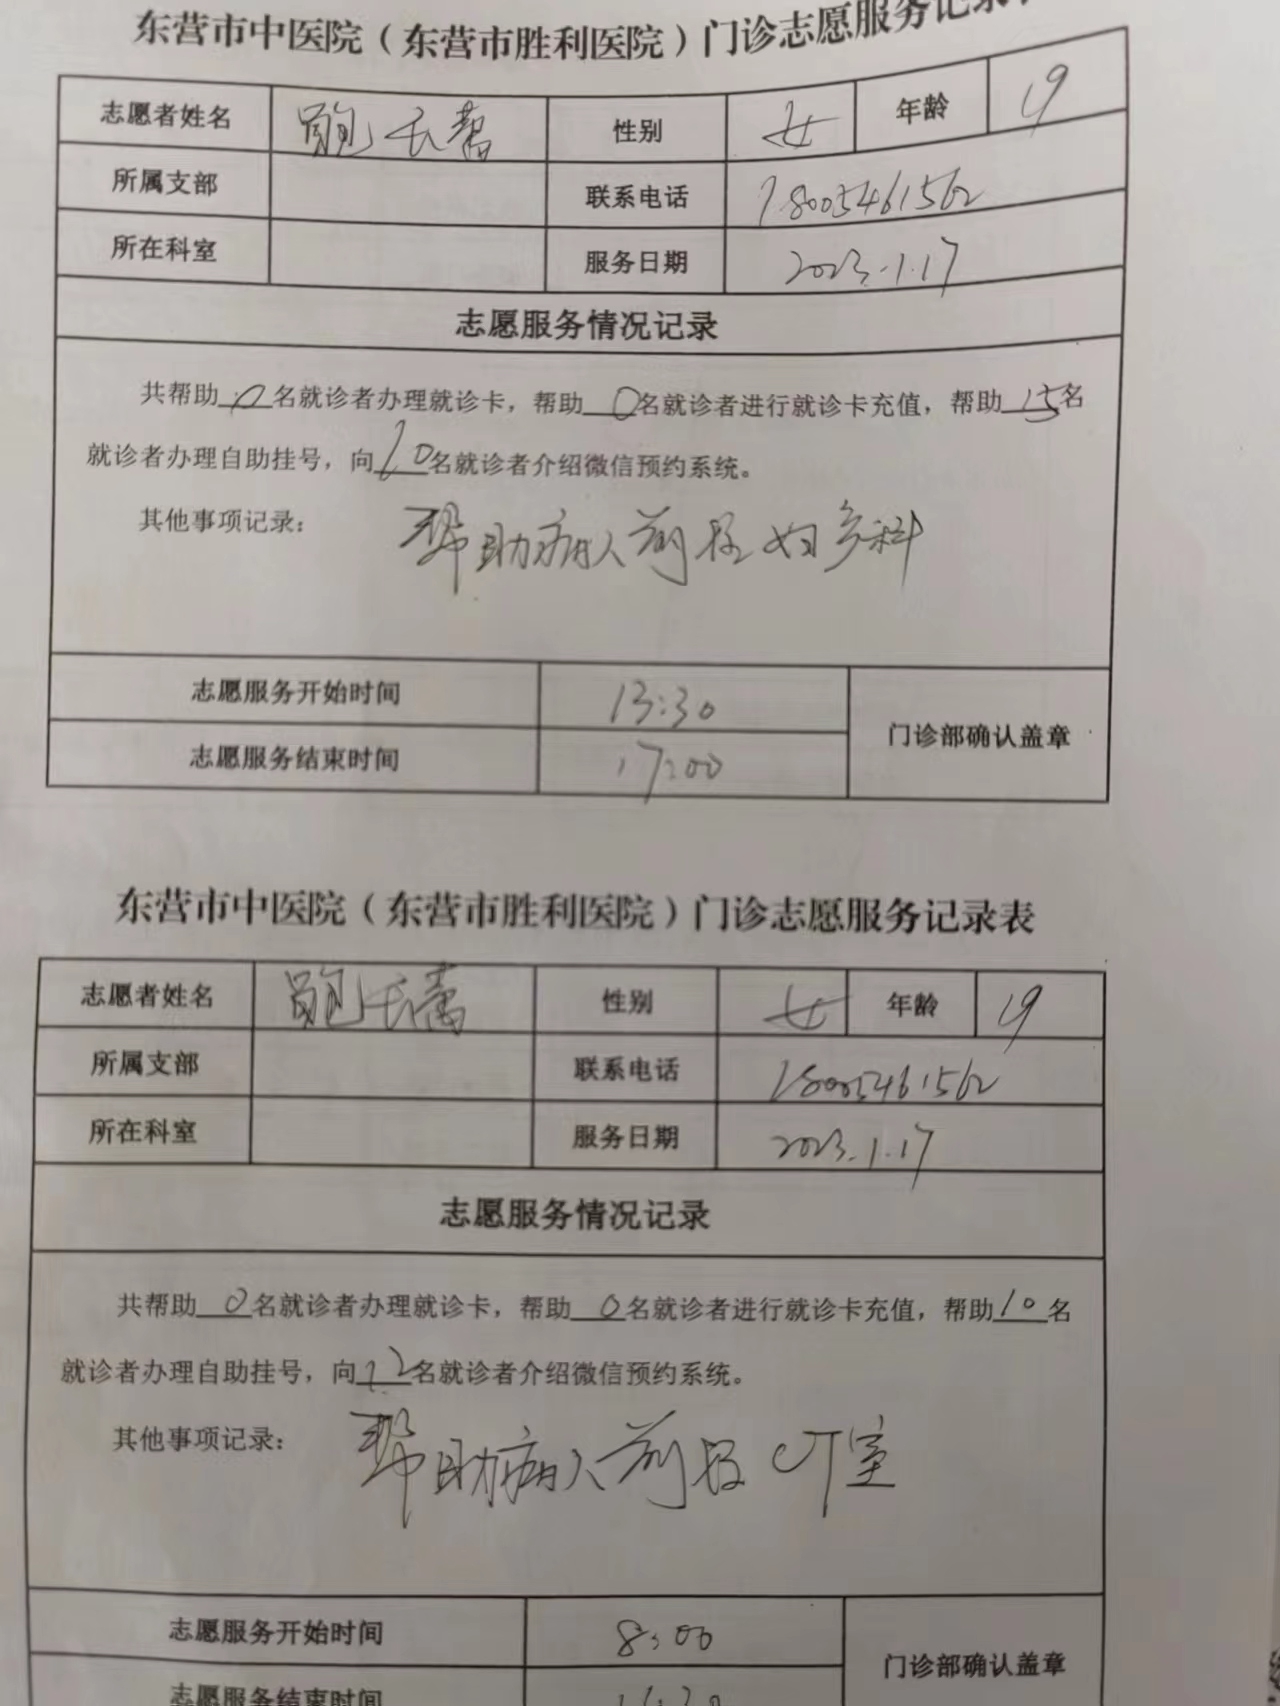 东营市中医院（东营市胜利医院）门诊志愿服务记录表
志愿者姓名 鲍长蕾 性别 女 年龄 19
所属支部 联系电话 18005461562
所在科室 服务日期 2023.1.17
志愿服务情况记录
共帮助0名就诊者办理就诊卡，帮助0名就诊者进行就诊卡充值，帮助15名
就诊者办理自助挂号，向20名就诊者介绍微信预约系统。
其他事项记录： 帮助病人前往妇产科
志愿服务开始时间 13:30
门诊部确认盖章
志愿服务结束时间 17:00
东营市中医院（东营市胜利医院）门诊志愿服务记录表
志愿者姓名 鲍长蕾 性别 女 年龄 19
所属支部 联系电话 18005461562
所在科室 服务日期 2023.1.17
志愿服务情况记录
共帮助0名就诊者办理就诊卡，帮助0名就诊者进行就诊卡充值，帮助10名
就诊者办理自助挂号，向12名就诊者介绍微信预约系统。
其他事项记录： 帮助病人前往CT室
志愿服务开始时间 8:00
门诊部确认盖章
志愿服务结束时间